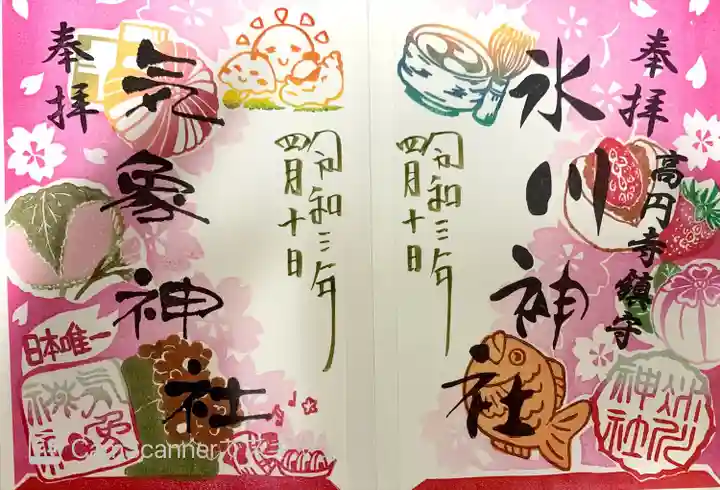 奉拝
高円寺鎮守
氷川神社
令和三年
四月十日
氷川
神社
奉拝
気象神社
令和三年
四月十日
日本唯一
気象
神社
CamScannerで